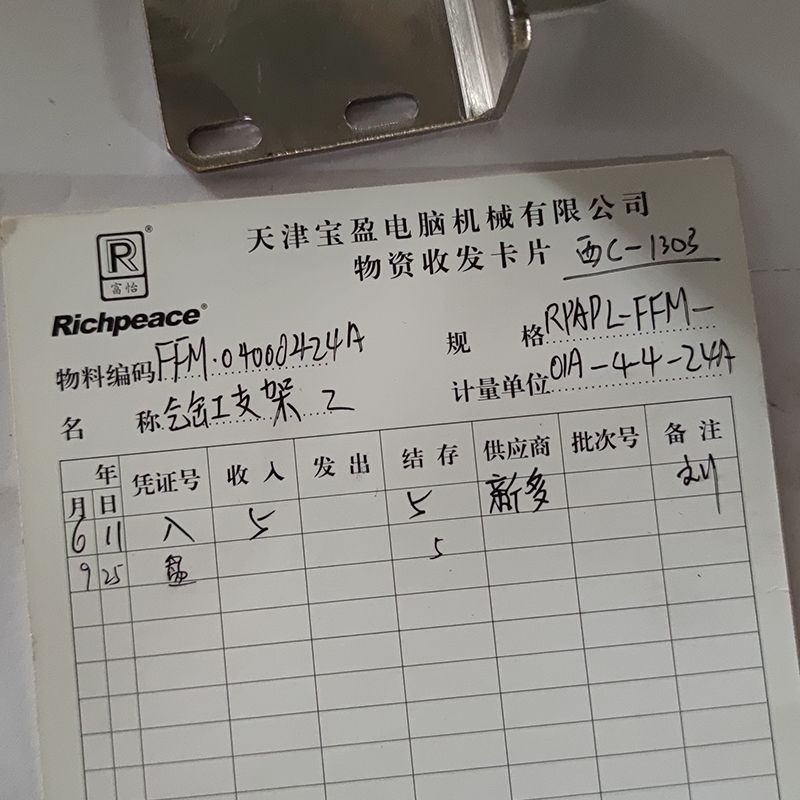 R®
富怡
Richpeace®
天津宝盈电脑机械有限公司
物资收发卡片 西C-1303
物料编码 FFM.04008424A
规格 RPAPL-FFM-
名称 气缸支架 2
计量单位 01A-4-4-24A
年 凭证号 收入 发出 结存 供应商 批次号 备注
月 日
6 11 入 5 5 新多 刘
9 25 盘 5